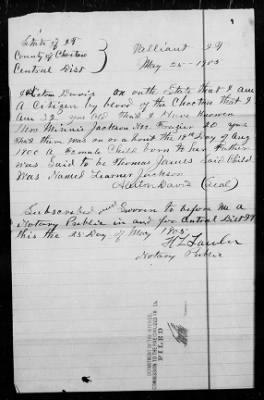 State of I T
County of Choctaw
Central Dist
I T
May 25 - 1903
Davis on oath State that I am
a Citizen by blood of the Choctaw that I
am 32 year old that I have known
Mrs Minnie Jackson Nee Frazier 20 years
that there was on or about the 18th day of Aug
1900 a Female Child born to her Father
was Said to be Thomas James Said Child
Was Named Jackson
Davis (Seal)
Subscribed and Sworn to before me a
Notary Public in and for Central Dist IT
this the 25 Day of May 1903
Notary Public
FILED